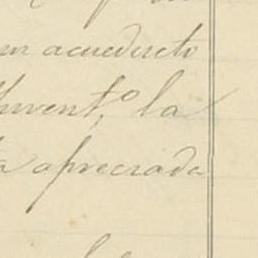 un acueducto
Invent,º la
a apreciada